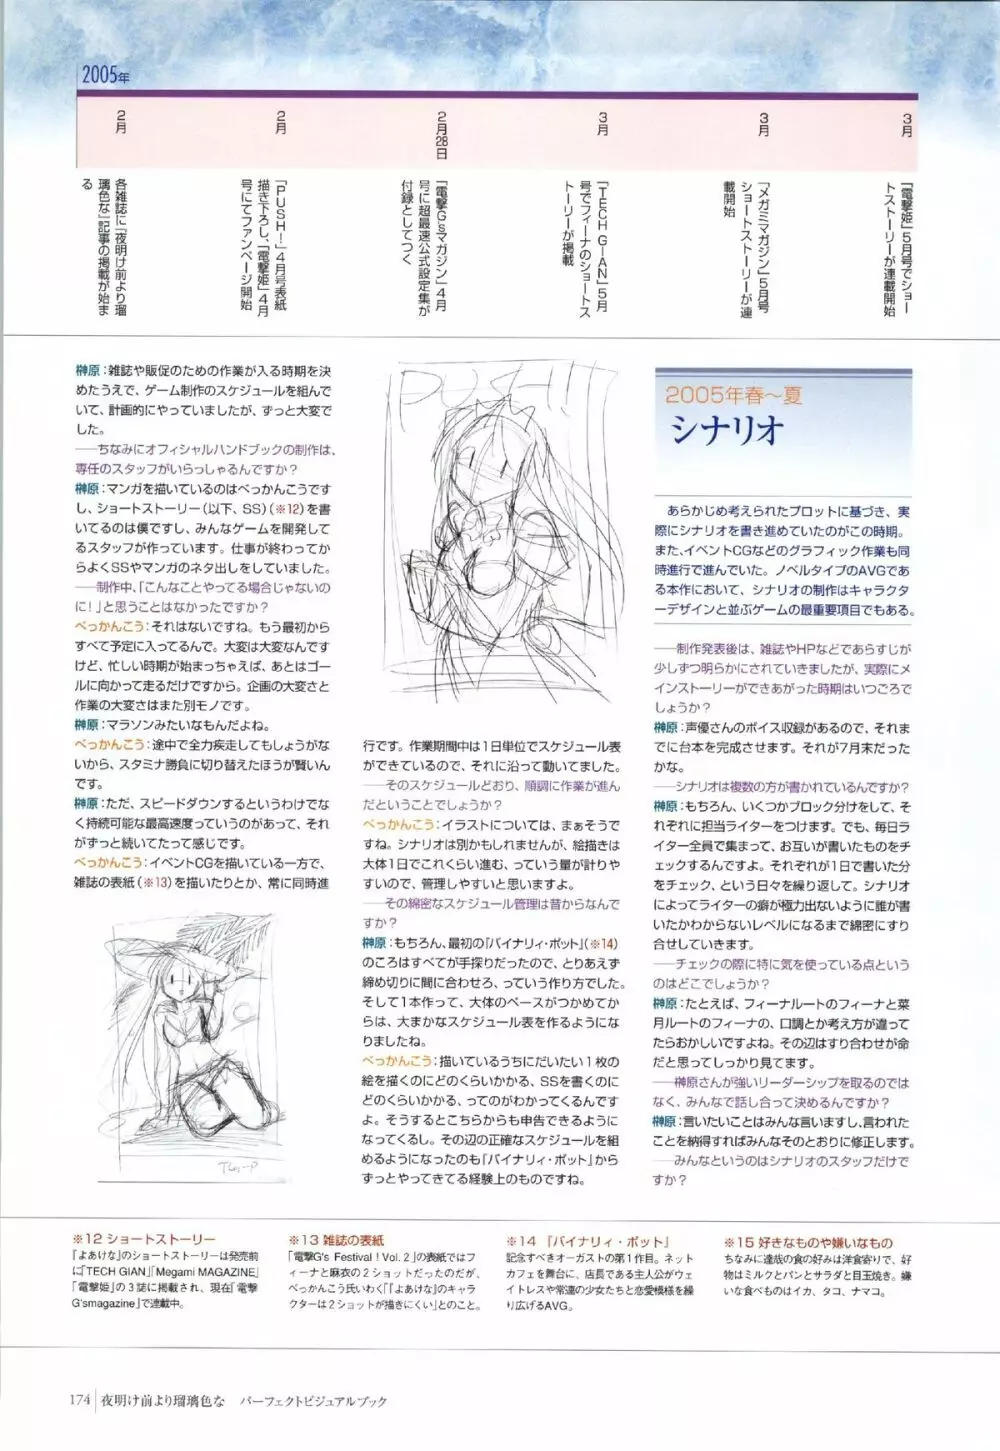 2005年
2月
各雑誌に『夜明け前より瑠
璃色な』記事の掲載が始ま
る
2月
『PUSH!』4月号表紙
描き下ろし、『電撃姫』4月
号にてファンページ開始
2月28日
『電撃G'sマガジン』4月
号に超最速公式設定集が
付録としてつく
3月
『TECH GIAN』5月
号でフィーナのショートス
トーリーが掲載
3月
『メガミマガジン』5月号
ショートストーリーが連
載開始
3月
『電撃姫』5月号でショー
トストーリーが連載開始
榊原：雑誌や販促のための作業が入る時期を決
めたうえで、ゲーム制作のスケジュールを組んで
いて、計画的にやっていましたが、ずっと大変で
した。
──ちなみにオフィシャルハンドブックの制作は、
専任のスタッフがいらっしゃるんですか？
榊原：マンガを描いているのはべっかんこうです
し、ショートストーリー（以下、SS）（※12）を書
いてるのは僕ですし、みんなゲームを開発して
るスタッフが作っています。仕事が終わってか
らよくSSやマンガのネタ出しをしていました。
──制作中、「こんなことやってる場合じゃないの
に！」と思うことはなかったですか？
べっかんこう：それはないですね。もう最初から
すべて予定に入ってるんで。大変は大変なんです
けど、忙しい時期が始まっちゃえば、あとはゴー
ルに向かって走るだけですから。企画の大変さと
作業の大変さはまた別モノです。
榊原：マラソンみたいなもんだよね。
べっかんこう：途中で全力疾走してもしょうがな
いから、スタミナ勝負に切り替えたほうが賢いん
です。
榊原：ただ、スピードダウンするというわけでな
く持続可能な最高速度っていうのがあって、それ
がずっと続いてたって感じです。
べっかんこう：イベントCGを描いている一方で、
雑誌の表紙（※13）を描いたりとか、常に同時進
PUSH!
行です。作業期間中は1日単位でスケジュール表
ができているので、それに沿って動いてました。
──そのスケジュールどおり、順調に作業が進ん
だということでしょうか？
べっかんこう：イラストについては、まぁそうで
すね。シナリオは別かもしれませんが、絵描きは
大体1日でこれくらい進む、っていう量が計りや
すいので、管理しやすいと思いますよ。
──その綿密なスケジュール管理は昔からなんで
すか？
榊原：もちろん、最初の『バイナリィ・ポット』（※14）
のころはすべてが手探りだったので、とりあえず
締め切りに間に合わせろ、っていう作り方でした。
そして1本作って、大体のペースがつかめてか
らは、大まかなスケジュール表を作るようにな
りましたね。
べっかんこう：描いているうちにだいたい1枚の
絵を描くのにどのくらいかかる、SSを書くのに
どのくらいかかる、ってのがわかってくるんです
よ。そうするとこちらからも申告できるように
なってくるし。その辺の正確なスケジュールを組
めるようになったのも『バイナリィ・ポット』から
ずっとやってきてる経験上のものですね。
2005年春～夏
シナリオ
あらかじめ考えられたプロットに基づき、実
際にシナリオを書き進めていたのがこの時期。
また、イベントCGなどのグラフィック作業も同
時進行で進んでいた。ノベルタイプのAVGであ
る本作において、シナリオの制作はキャラクタ
ーデザインと並ぶゲームの最重要項目でもある。
──制作発表後は、雑誌やHPなどであらすじが
少しずつ明らかにされていきましたが、実際にメ
インストーリーができあがった時期はいつごろで
しょうか？
榊原：声優さんのボイス収録があるので、それま
でに台本を完成させます。それが7月末だった
かな。
──シナリオは複数の方が書かれているんですか？
榊原：もちろん、いくつかブロック分けをして、そ
れぞれに担当ライターをつけます。でも、毎日ラ
イター全員で集まって、お互いが書いたものをチ
ェックするんですよ。それぞれが1日で書いた分
をチェック、という日々を繰り返して。シナリオ
によってライターの癖が極力出ないように誰が書
いたかわからないレベルになるまで綿密にすり
合せしていきます。
──チェックの際に特に気を使っている点という
のはどこでしょうか？
榊原：たとえば、フィーナルートのフィーナと菜
月ルートのフィーナの、口調とか考え方が違って
たらおかしいですよね。その辺はすり合わせが命
だと思ってしっかり見てます。
──榊原さんが強いリーダーシップを取るのでは
なく、みんなで話し合って決めるんですか？
榊原：言いたいことはみんな言いますし、言われた
ことを納得すればみんなそのとおりに修正します。
──みんなというのはシナリオのスタッフだけで
すか？
※12 ショートストーリー
『よあけな』のショートストーリーは発売前
に『TECH GIAN』『Megami MAGAZINE』
『電撃姫』の3誌に掲載され、現在『電撃
G'smagazine』で連載中。
※13 雑誌の表紙
『電撃G's Festival！Vol. 2』の表紙ではフ
ィーナと麻衣の2ショットだったのだが、
べっかんこう氏いわく「『よあけな』のキャラ
クターは2ショットが描きにくい」とのこと。
※14 『バイナリィ・ポット』
記念すべきオーガストの第1作目。ネット
カフェを舞台に、店長である主人公がウェ
イトレスや常連の少女たちと恋愛模様を繰
り広げるAVG。
※15 好きなものや嫌いなもの
ちなみに達哉の食の好みは洋食寄りで、好
物はミルクとパンとサラダと目玉焼き。嫌
いな食べものはイカ、タコ、ナマコ。
174 夜明け前より瑠璃色な パーフェクトビジュアルブック